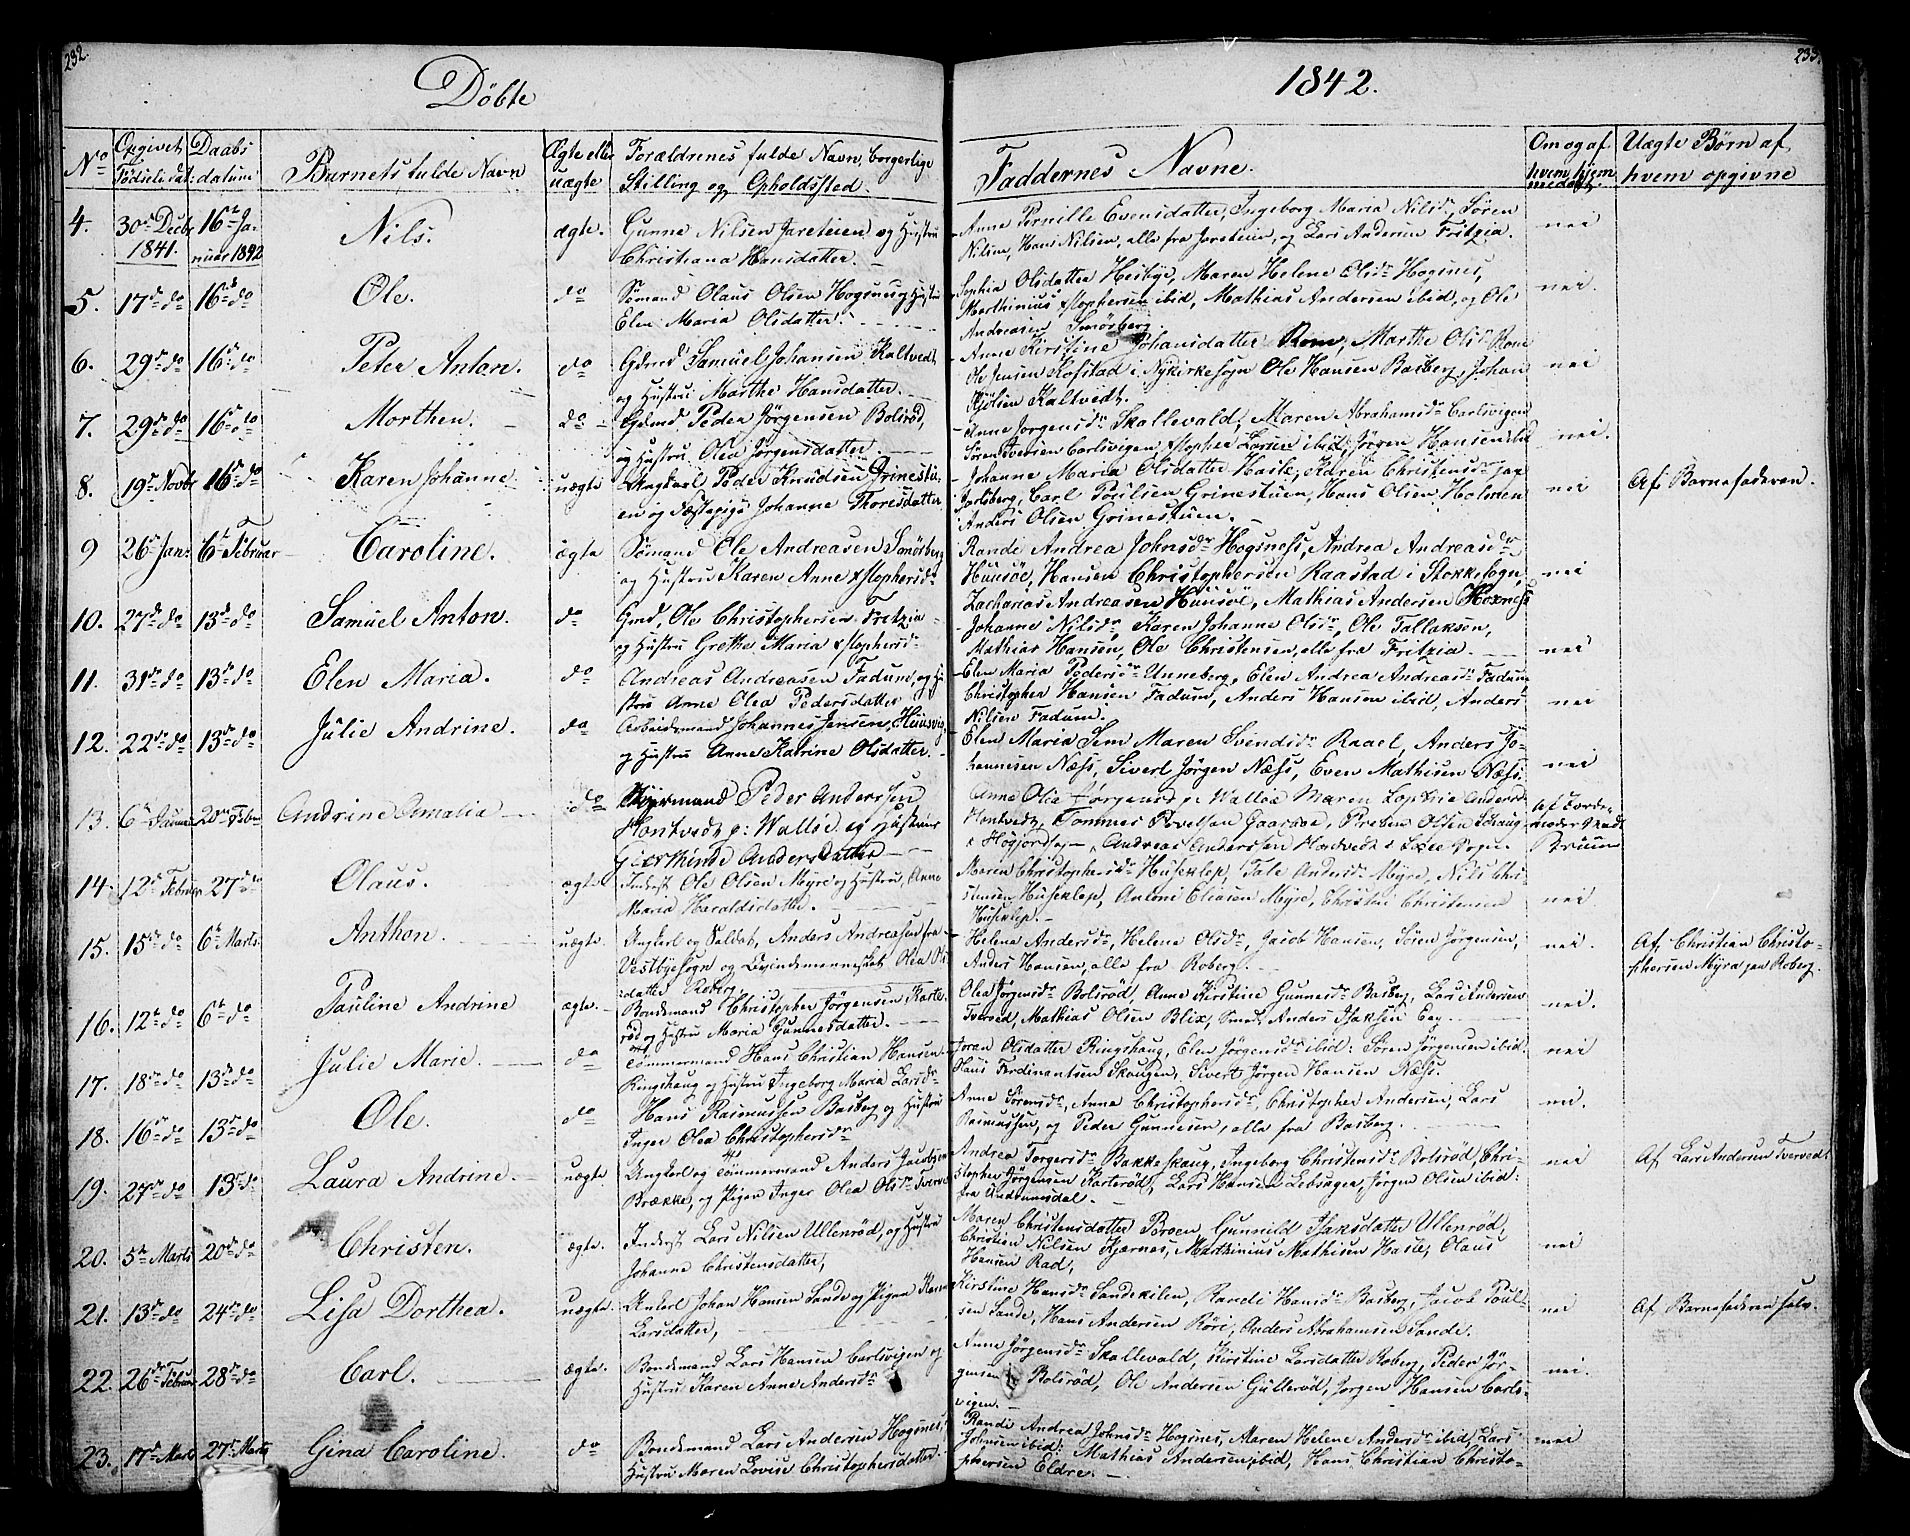 232.
Döbte
1842.
233.
No
Opgivet Födselsdat:
Daabs datum
Barnets fulde Navn
Ægte eller uægte
Forældrenes fulde Navn, borgerlige Stilling og Opholdssted.
Faddernes Navne.
Om og af hvem hjemmedøbt.
Uægte Børn af, hvem opgivne
4. 30te Decbr 1841. 16de Januar 1842 Nils. ægte. Gunne Nilsen Jareteien og Hustru
Christiana Hansdatter.
Anne Pernille Evensdatter, Ingeborg Maria Nilsdr, Sören
Nilsen, Hans Nilsen, alle fra Jareteien, og Lars Andersen Fritzia. nei
5. 17de do 16de do Ole. do Sömand Olaus Olsen Hogsnes og Hustru
Elen Maria Olsdatter.
Sophia Olsdatter Heibye, Maren Helene Olsdr Hogsnes,
Marthinius Xstophersen ibid, Mathias Andersen ibid, og Ole
Andreasen Smörberg. nei.
6. 29de do 16de do Peter Anton. do Gdmd Samuel Johansen Kaltvedt
og Hustru Marthe Hansdatter.
Anne Kirstine Johansdatter Rom, Marthe Olsdr Rom
Ole Jensen Kofstad i Nykirkesogn Ole Hansen Basberg, Johan
Kjölsen Kaltvedt. nei
7. 29de do 16de do Morthen. do Gdmd Peder Jörgensen Bolsröd,
og Hustru Olea Jörgensdatter.
Anne Jörgensdr Skallevald, Maren Abrahamsdr Carlsvigen
Sören Iversen Carlsvigen, Xstopher Larsen ibid, Jörgen Hansen ibid nei.
8. 19de Novbr 16de do Karen Johanne uægte Ungkarl Peder Knudsen Grinestu-
en og Fæstepige Johanne Thoresdatter
Johanne Maria Olsdatter Hasle, Karen Christensdr
Jarlsberg, Carl Poulsen Grinestuen, Hans Olsen Holmen
Anders Olsen Grinestuen. nei Af Barnefaderen.
9 26de Janr 6te Februar Caroline. ægte Sömand Ole Andreasen Smörberg
og Hustru Karen Anne Xstophersdr
Randi Andrea Johnsdr Hogsness, Andrea Andreasdr
Huusöe, Hansen Christophersen Raastad i Stokkesogn,
Zacharias Andreasen Huusöe, Mathias Andersen Hoxness nei
10. 27de do 13de do Samuel Anton. do Gmd, Ole Christophersen Fritzia
og Hustru Grethe Maria Xstophersdr
Johanne Nilsdr, Karen Johanne Olsdr, Ole Tallaksen,
Mathias Hansen, Ole Christensen, alle fra Fritzia. nei
11. 31de do 13de do Elen Maria. do Andreas Andreasen Fadum, og Hu-
stru Anne Olea Pedersdatter
Elen Maria Pedersdr Unneberg, Elen Andrea Andreasdr Fadum
Christopher Hansen Fadum, Anders Hansen ibid, Anders
Nilsen Fadum. nei
12. 22de do 13de do Julie Andrine. do Arbeidsmand Johannes Jensen, Huusvig
og Hustru Anne Katrine Olsdatter.
Elen Maria Sem Maren Svendsdr Raael, Anders Jo-
hannesen Næss, Sivert Jörgen Næss, Even Mathisen Næss nei
13. 6te Januar 20de Febr Andrine Amalia do Peder Anderssen
Hontvedt p: Wallöe og Hustrue
Andersdatter
Anne Olia Jörgensd p: Wallöe Maren Andersd
Hontvedt, Tommes Povelsen Gaaraae, Preben Olsen
Andreas Anderssen Hontvedt i Sogn. af Jorde-
moder Bruun
14. 12te Februar 27de do Olaus. ægte Inderst Ole Olsen Myre og Hustru, Anne
Maria Haraldsdatter.
Maren Christophersdr Huseklep, Tale Andersdr Myre, Nils Chri-
stensen Huseklep, Antoni Eliasen Myre, Christen Christensen
Huseklep. nei.
15. 15de do 6te Marts. Anthon. uægte. Ungkarl og Soldat, Anders Andreasen fra
Vestbyesogn og Qvindemennesket Olea Ol-
sdatter Roberg.
Helena Andersdr, Helene Olsdr, Jacob Hansen, Sören Jörgensen,
Anders Hansen, alle fra Roberg. nei. Af Christian Christo-
phersen Myra paa Roberg.
16. 12te do 6te do Pauline Andrine ægte. Bondemand Christopher Jörgensen Karte-
röd og Hustru Maria Gunnesdatter.
Olea Jörgensdr Bolsröd, Anne Kirstine Gunnesdr Basberg, Lars Andersen
Tverved, Mathias Olsen Blix, Smed Anders Isaksen Eeg. nei.
17. 18de do 13de do Julie Marie. do Tömmermand Hans Christian Hansen
Ringshaug og Hustru Ingeborg Maria Larsdr
Joran Olsdatter Ringshaug, Elen Jörgensdr ibid: Sören Jörgensen ibid.
Claus Ferdinantsen Skaugen, Sivert Jörgen Hansen Næss. nei
18. 16de do 13de do Ole. do Hans Rasmussen Basberg og Hustru
Inger Olea Christophersdr
Anne Sörensdr, Anne Christophersdr, Christopher Andersen, Lars
Rasmussen, og Peder Gunnesen, alle fra Basberg. nei.
19. 27de do 13de do Laura Andrine. uægte. Ungkerl og Tömmermand Anders Jacobsen
Brække, og Pigen Inger Olea Olsdr Tverved
Andrea Torgersdr Bakkeskaug, Ingeborg Christensdr Bolsröd, Chri-
stopher Jörgensen Karteröd, Lars Hansen Lebsagen, Jörgen Olsen ibid:
fra Undrumsdal. nei Af Lars Andersen Tverved.
20. 5te Marts 20de do Christen. ægte. Inderst Lars Nilsen Ullenröd, og Hustru
Johanne Christensdatter,
Maren Christensdatter Broen, Gunnild Isaksdatter Ullenröd,
Christian Nilsen Kjærnes, Marthinius Mathisen Hasle, Olaus
Hansen Rad, nei
21. 13de do 24de do Lisa Dorthea. uægte. Unkerl Johan Hansen Sande og Pigen Karen
Larsdatter,
Kirstine Hansdr Sandskilen, Randi Hansdr Basberg, Jacob Poul-
sen Sande, Hans Andersen Röri, Anders Abrahamsen Sande. nei Af Barnefaderen selv.
22. 26de Februar 28de do Carl. ægte. Bondemand Lars Hansen Carlsvigen og
Hustru Karen Anne Andersdr
Anne Jörgensdr Skallevald, Kirstine Larsdatter Roberg, Peder Jör-
gensen Bolsröd, Ole Andersen Gulleröd, Jörgen Hansen Carls-
vigen. nei.
23. 17de Marts 27de Marts Gina Caroline. do Bondemand Lars Andersen Hogsnes,
Hustru Maren Lovise Christophersdatter.
Randi Andrea Johnsdr Hogsnes, Maren Helene Andersdr ibid, Lars
Johnsen ibid: Mathias Andersen ibid, Hans Christian Christo-
phersen Eldre. nei